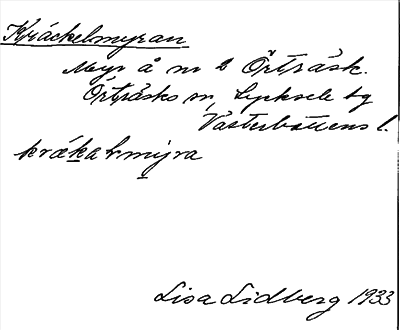 Kräckelmyran
Myr å nr 6 Örträsk.
Örträsks sn, Lycksele tg
Västerbottens l.
krækalmyra
Lisa Lidberg 1933